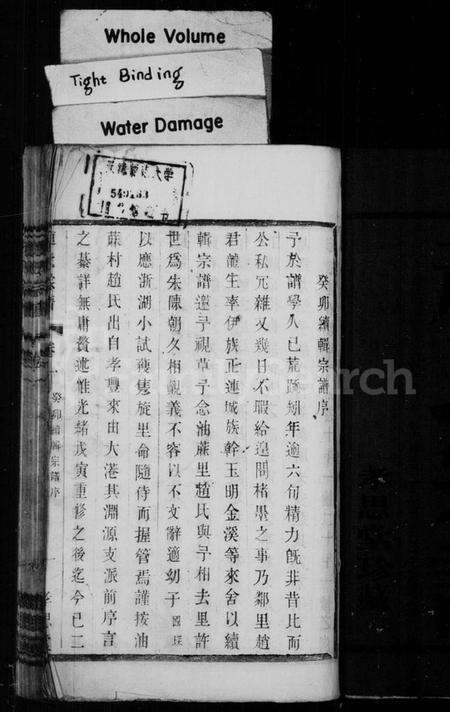 Whole Volume
Tight Binding
Water Damage
癸卯續輯宗譜序
予於譜學久已荒蹟矧年逾六旬精力旣非昔比而
公私冗雜又幾日不暇給遑問楮墨之事乃鄰里趙
君 生率伊族正連城族幹玉明金溪等來舍以續
輯宗譜邀予視草予念油蔴里趙氏與予相去里許
世爲朱陳朝夕相親義不容以不文辭適幼子國
以應浙湖小試 旋里命隨侍而握管焉謹按油
蔴村趙氏出自孝豐來由大港其淵源支派前序言
之綦詳無庸贅述惟光緒戊寅重修之後迄今已二
癸卯續輯宗譜序